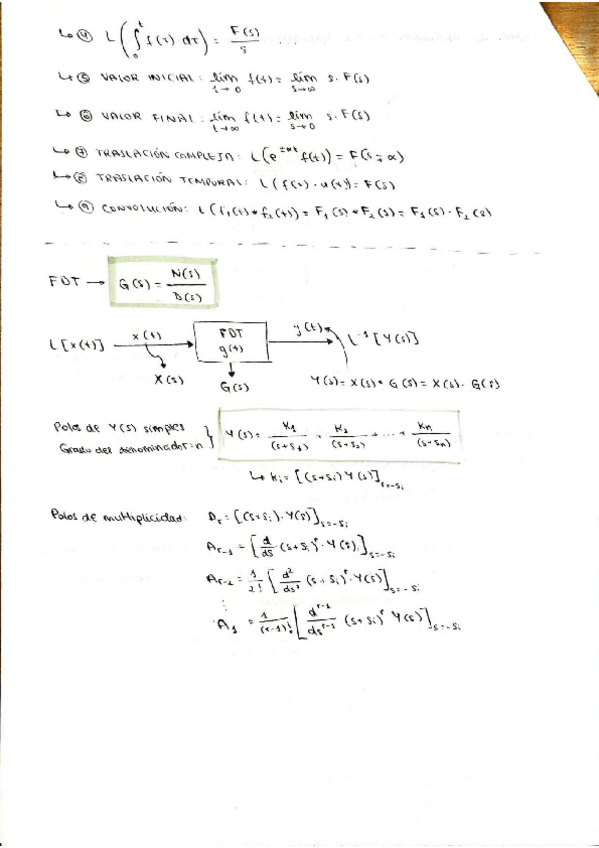 ↳ ④ L(∫₀ᵗ f(τ)·dτ) = F(s)/s ...
↳ ⑤ VALOR INICIAL: lim t→0 f(t) = lim s→∞ s·F(s)
↳ ⑥ VALOR FINAL: lim t→∞ f(t) = lim s→0 s·F(s)
↳ ⑦ TRASLACIÓN COMPLEJA: L(e^±αt f(t)) = F(s∓α)
↳ ⑧ TRASLACIÓN TEMPORAL: L(f(t)·u(t)) = F(s)
↳ ⑨ CONVOLUCIÓN: L(f₁(t)*f₂(t)) = F₁(s)*F₂(s) = F₁(s)·F₂(s)
FDT → G(s) = N(s)/D(s)
L[x(t)] x(t) → FDT g(t) y(t) → L⁻¹[Y(s)]
X(s) G(s) Y(s) = X(s)*G(s) = X(s)·G(s)
Polos de Y(s) simples
Grado del denominador=n } Y(s) = K₁/(s+s₁) + K₂/(s+s₂) + ... + Kn/(s+sn)
↳ Ki = [(s+si) Y(s)]s=-si
Polos de multiplicidad: Dr = [(s+si)·Y(s)]s=-si
Ar-1 = [d/ds (s+si)^r·Y(s)]s=-si
Ar-2 = 1/2! [d²/ds² (s+si)^r·Y(s)]s=-si
⋮
A₁ = 1/(r-1)! [d^r-1/ds^r-1 (s+si)^r Y(s)]s=-si